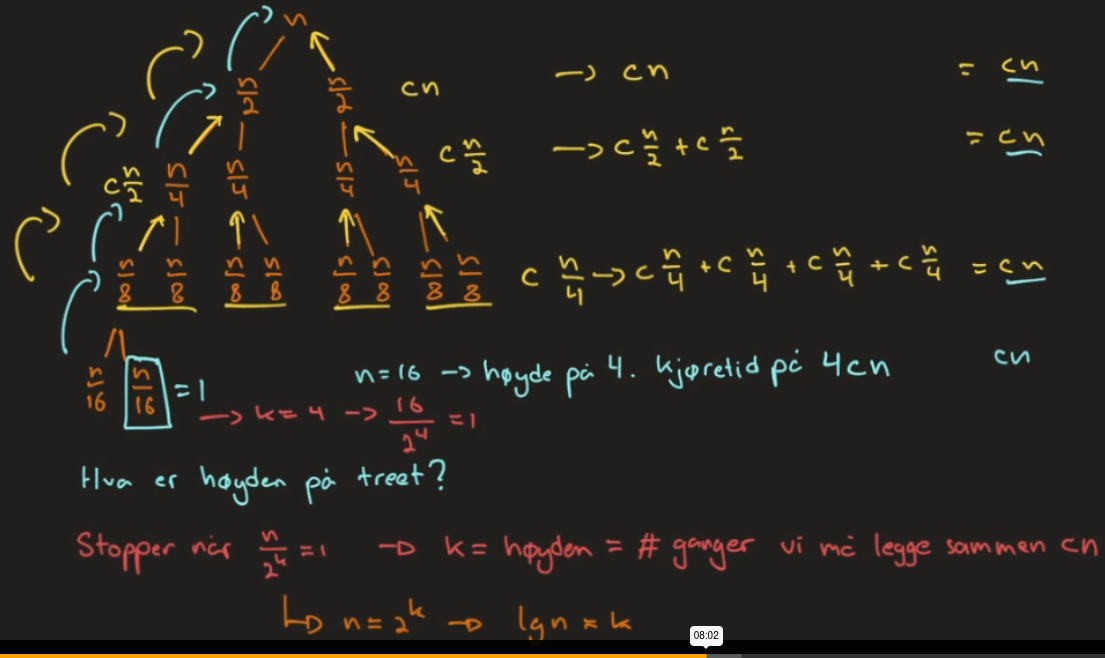 n
n/2 n/2 cn → cn = cn
c n/2 n/4 n/4 n/4 n/4 c n/2 → c n/2 + c n/2 = cn
n/8 n/8 n/8 n/8 n/8 n/8 n/8 n/8 c n/4 → c n/4 + c n/4 + c n/4 + c n/4 = cn
n/16 n/16 = 1 n=16 → høyde på 4. kjøretid på 4cn cn
→ k = 4 → 16/2^4 = 1
Hva er høyden på treet?
Stopper når n/2^k = 1 → k = høyden = # ganger vi må legge sammen cn
↳ n = 2^k → lgn = k
08:02